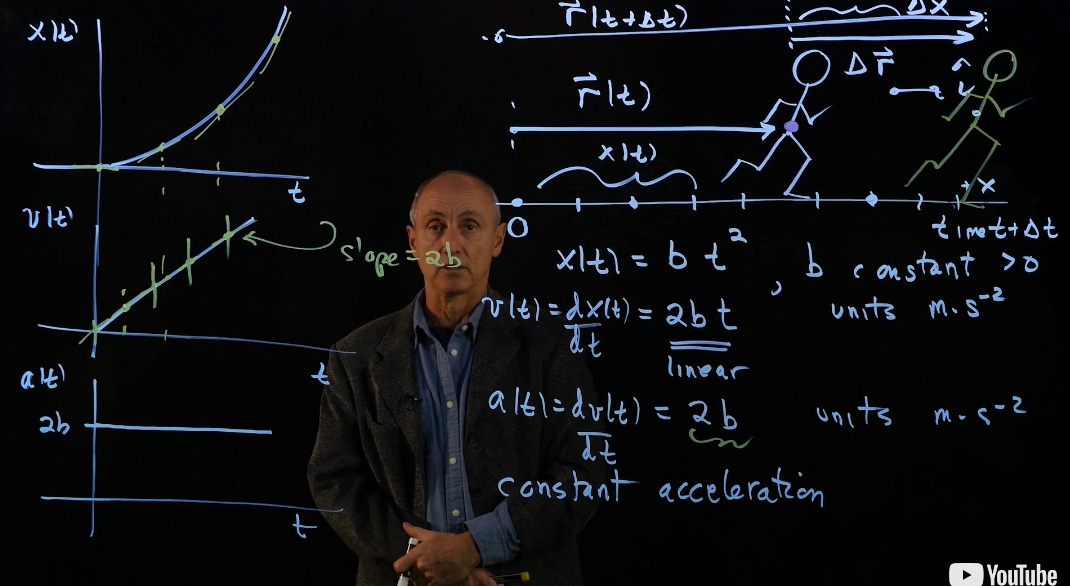 x(t)
t
v(t)
slope = 2b
t
a(t)
2b
t
r⃗(t+Δt)
Δx
Δr⃗
r⃗(t)
x(t)
+x
0
time t+Δt
x(t) = b t², b constant >0
units m·s⁻²
v(t) = dx(t)/dt = 2b t
linear
a(t) = dv(t)/dt = 2b units m·s⁻²
constant acceleration
YouTube